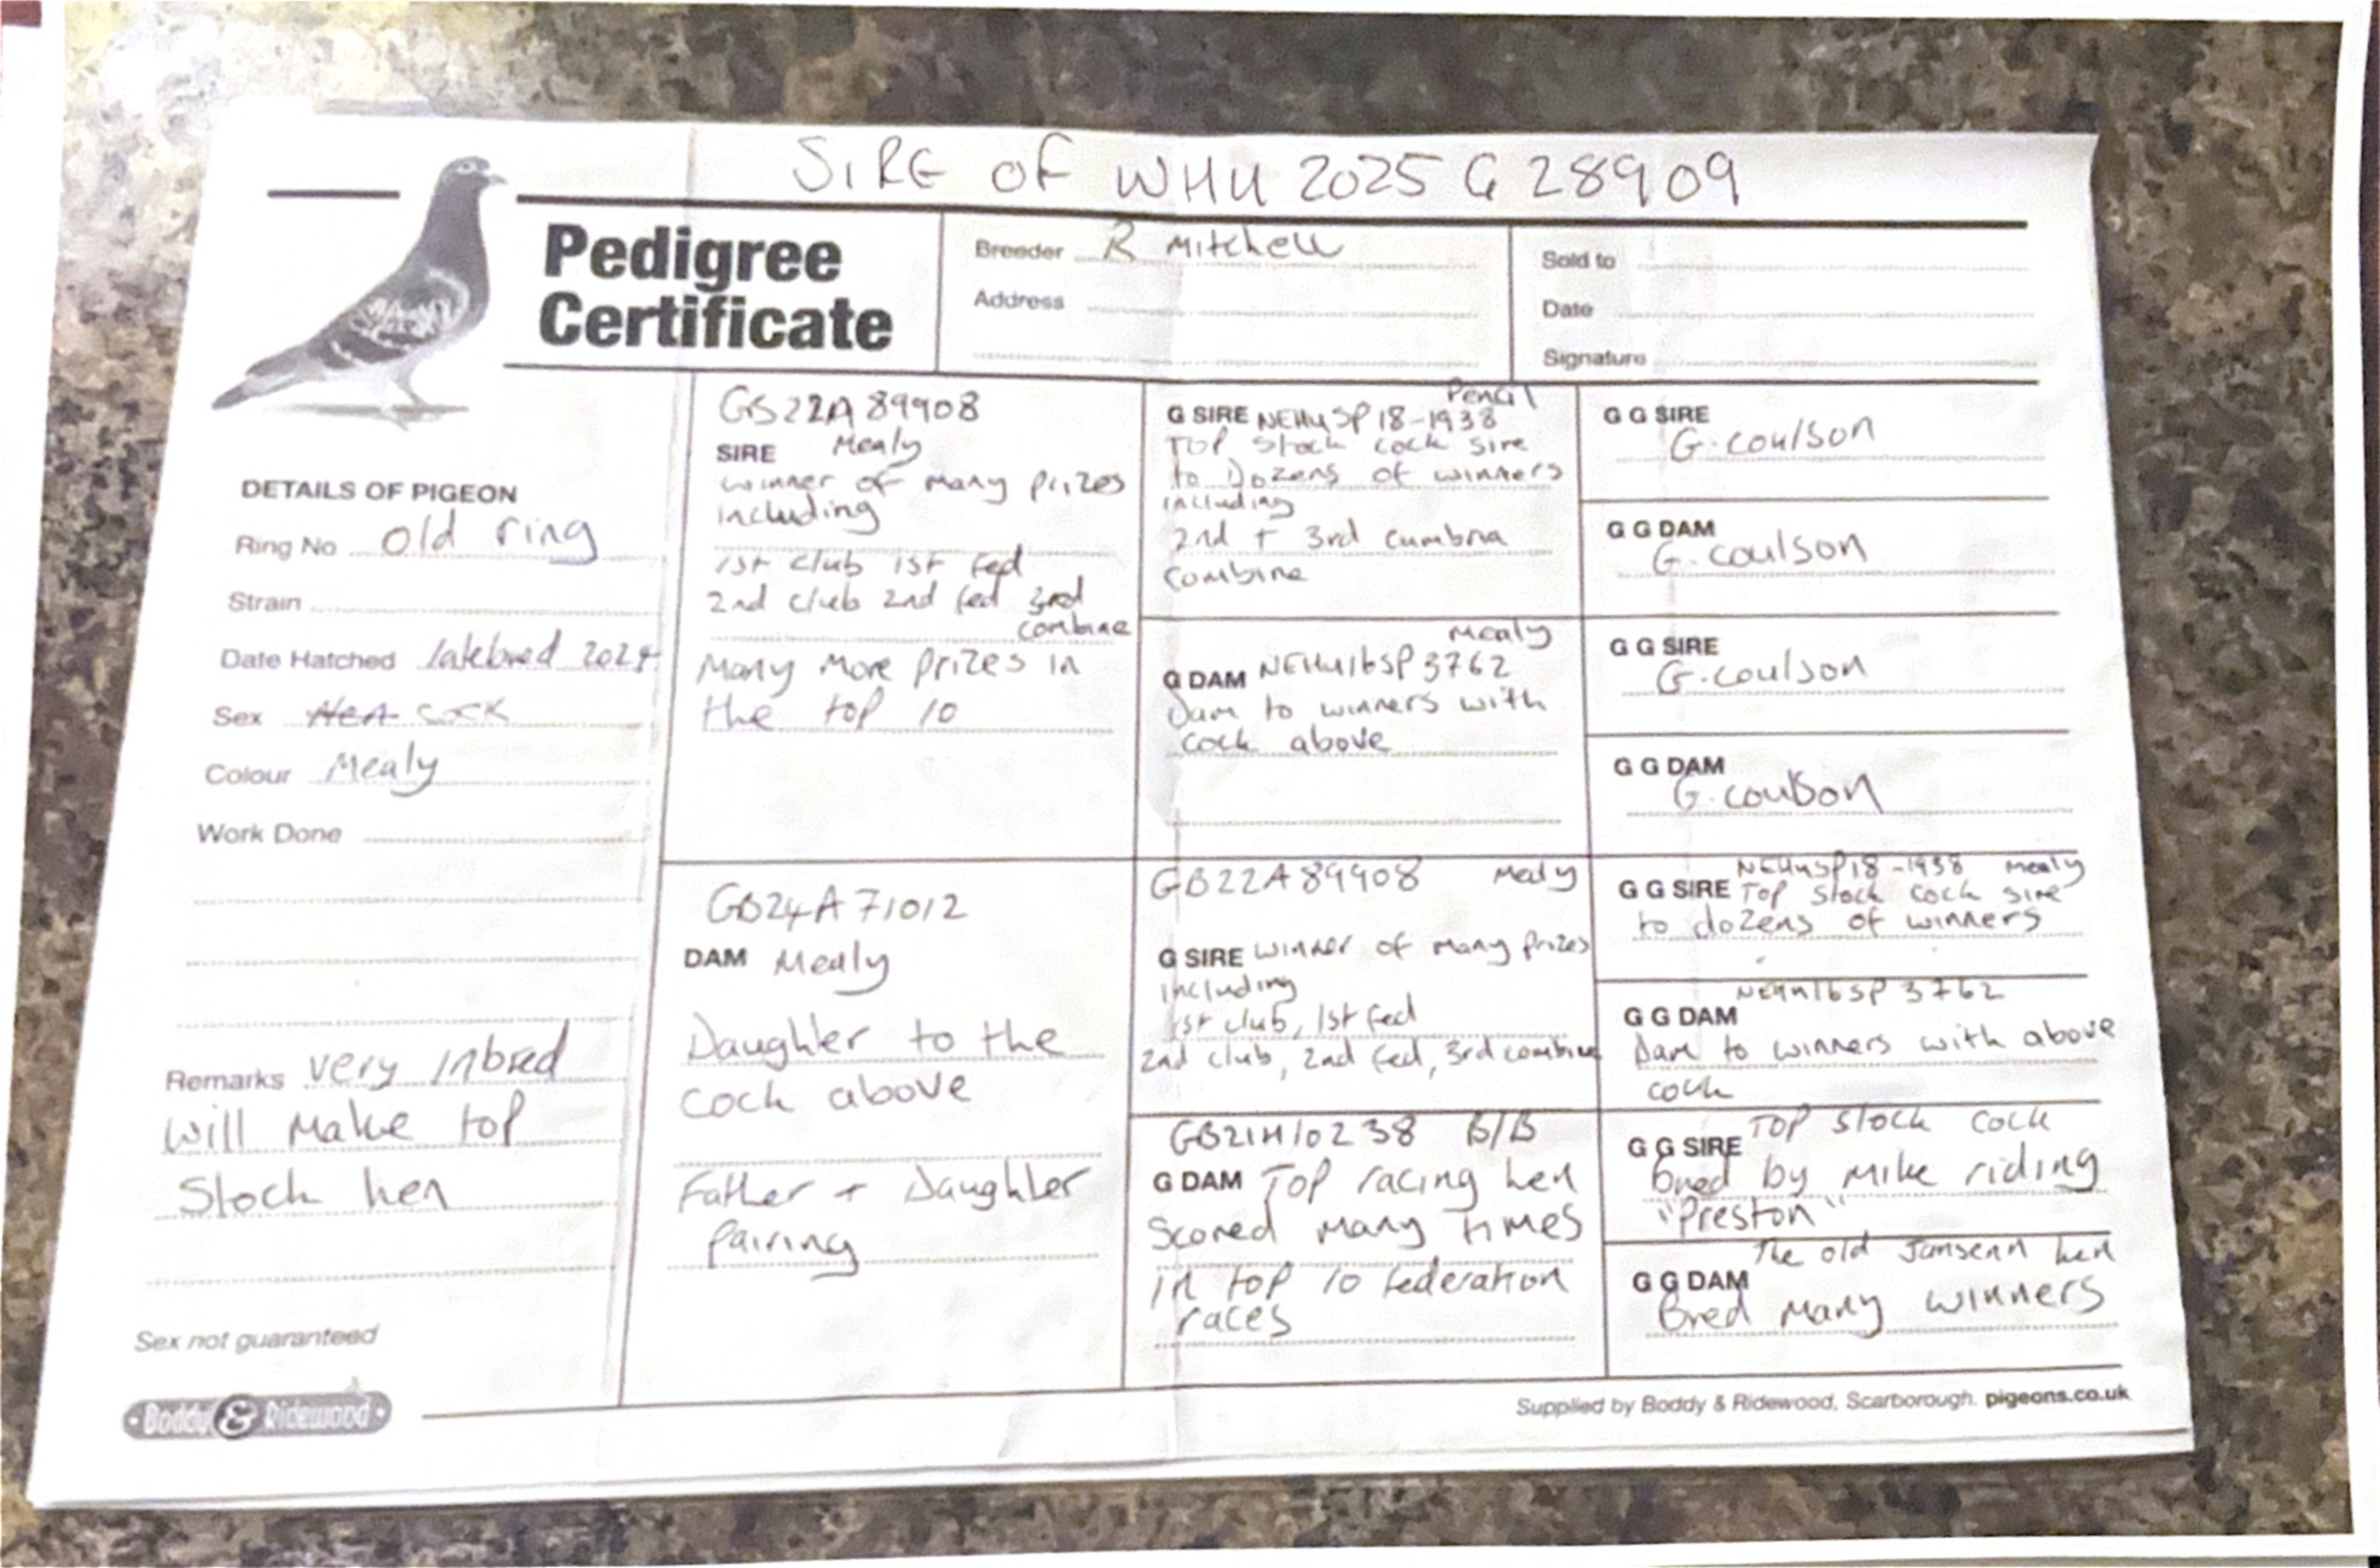 SIRE OF WHU 2025 G 28909
Pedigree
Certificate
Breeder R Mitchell
Address
Sold to
Date
Signature
DETAILS OF PIGEON
Ring No old ring
Strain
Date Hatched latebred 2024
Sex Hen Cock
Colour Mealy
Work Done
Remarks very inbred
will make top
Stock hen
Sex not guaranteed
Boddy & Ridewood
GB22A89908
SIRE Mealy
winner of many prizes
including
1st club 1st fed
2nd club 2nd fed 3rd
combine
Many more prizes in
the top 10
GB24A71012
DAM Mealy
Daughter to the
cock above
Father + Daughter
pairing
Pencil
G SIRE NEHUSP18-1938
TOP stock cock sire
to Dozens of winners
including
2nd + 3rd cumbria
combine
Mealy
G DAM NEHU16SP3762
Dam to winners with
cock above
GB22A89908 Mealy
G SIRE winner of many prizes
including
1st club, 1st fed
2nd club, 2nd fed, 3rd combine
GB21H10238 B/B
G DAM Top racing hen
Scored many times
in top 10 federation
races
G G SIRE
G. coulson
G G DAM
G. coulson
G G SIRE
G. coulson
G G DAM
G. coulson
NEHUSP18-1938 mealy
G G SIRE Top stock cock sire
to dozens of winners
NEHU16SP3762
G G DAM
Dam to winners with above
cock
G G SIRE TOP stock cock
bred by Mike riding
"Preston"
The old Jansenn hen
G G DAM
Bred many winners
Supplied by Boddy & Ridewood, Scarborough. pigeons.co.uk